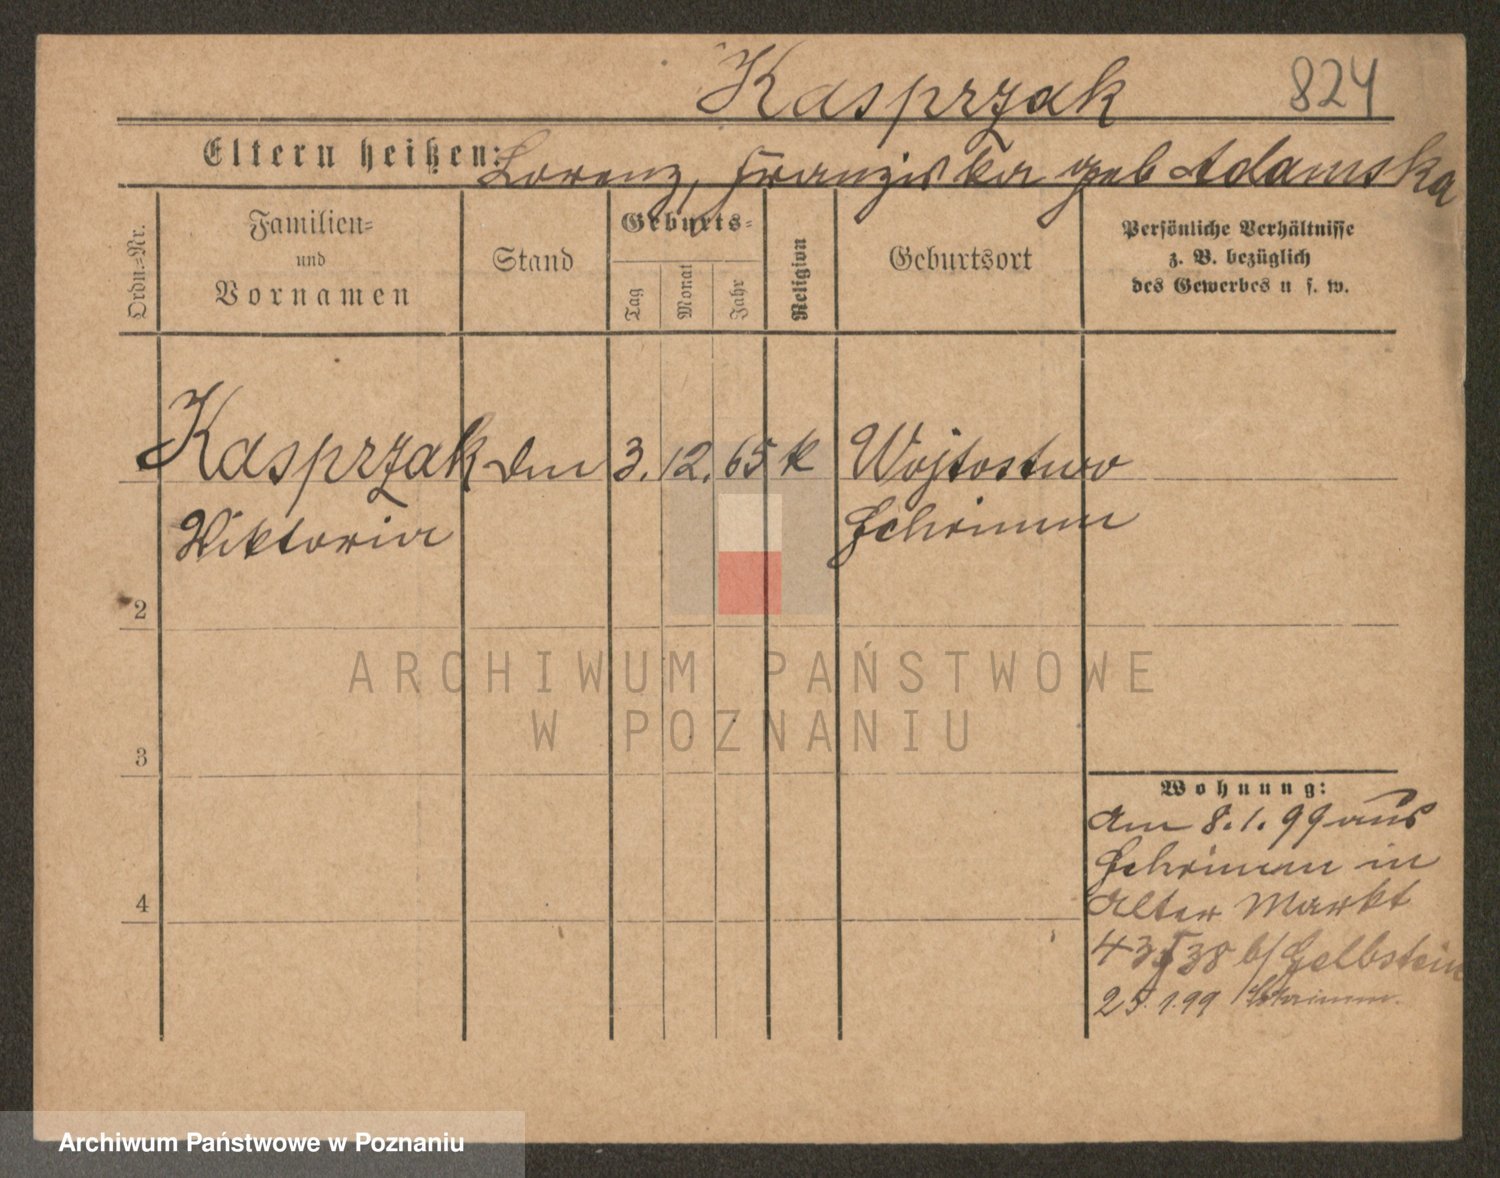 Kasprzak 824
Eltern heißen: Lorenz, Franziska geb Adamska
Ordn.-Nr.
Familien-
und
Vornamen
Stand
Geburts-
Tag
Monat
Jahr
Religion
Geburtsort
Persönliche Verhältnisse
z. B. bezüglich
des Gewerbes u s. w.
Kasprzak 3. 12. 65 k Wojtostwo
Wiktoria Schrimm
2
3
4
Wohnung:
Am 8.1.99 aus
Schrimm in
Alter Markt
43 I 38 b/ Gelbstein
25.1.99 Schrimm.
ARCHIWUM PAŃSTWOWE
W POZNANIU
Archiwum Państwowe w Poznaniu